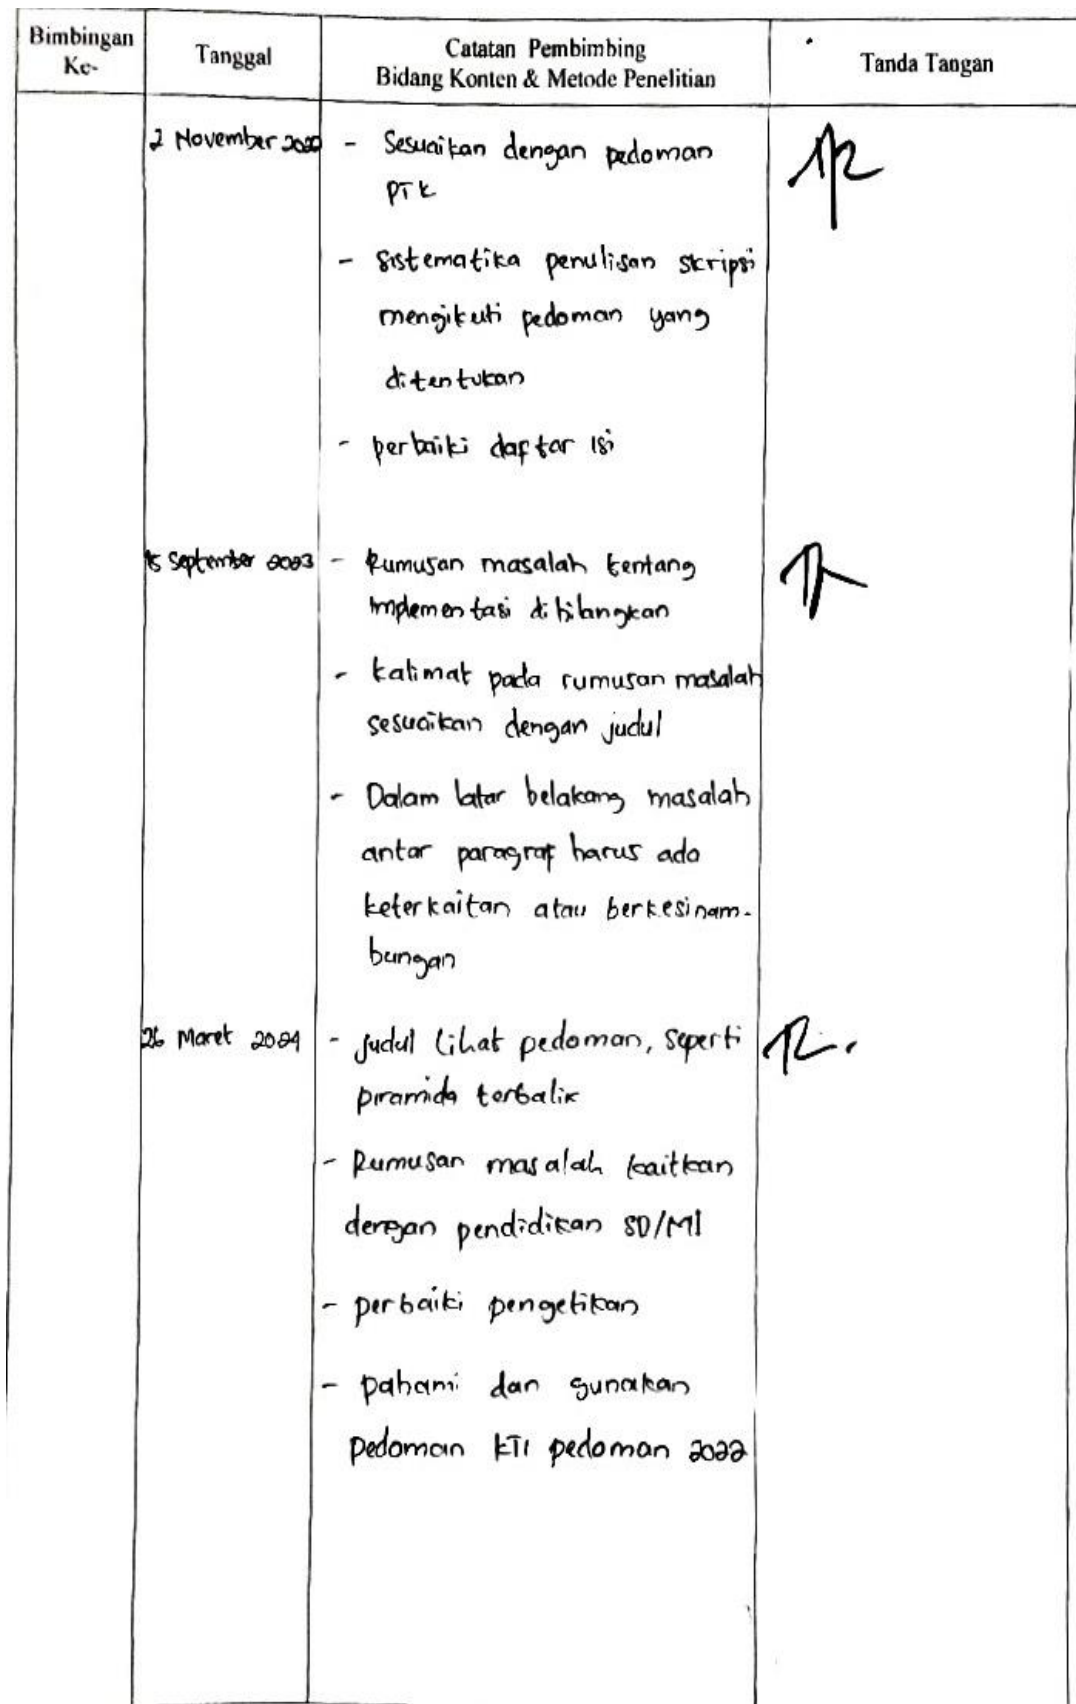 Bimbingan
Ke-
Tanggal
Catatan Pembimbing
Bidang Konten & Metode Penelitian
Tanda Tangan
2 November
- Sesuaikan dengan pedoman
PTK
- Sistematika penulisan skripsi
mengikuti pedoman yang
ditentukan
- perbaiki daftar isi
15 September 2023 - Rumusan masalah tentang
implementasi dihilangkan
- kalimat pada rumusan masalah
sesuaikan dengan judul
- Dalam latar belakang masalah
antar paragraf harus ada
keterkaitan atau berkesinam-
bungan
26 Maret 2024 - judul lihat pedoman, seperti
piramida terbalik
- Rumusan masalah kaitkan
dengan pendidikan SD/MI
- perbaiki pengetikan
- pahami dan gunakan
pedoman KTI pedoman 2022